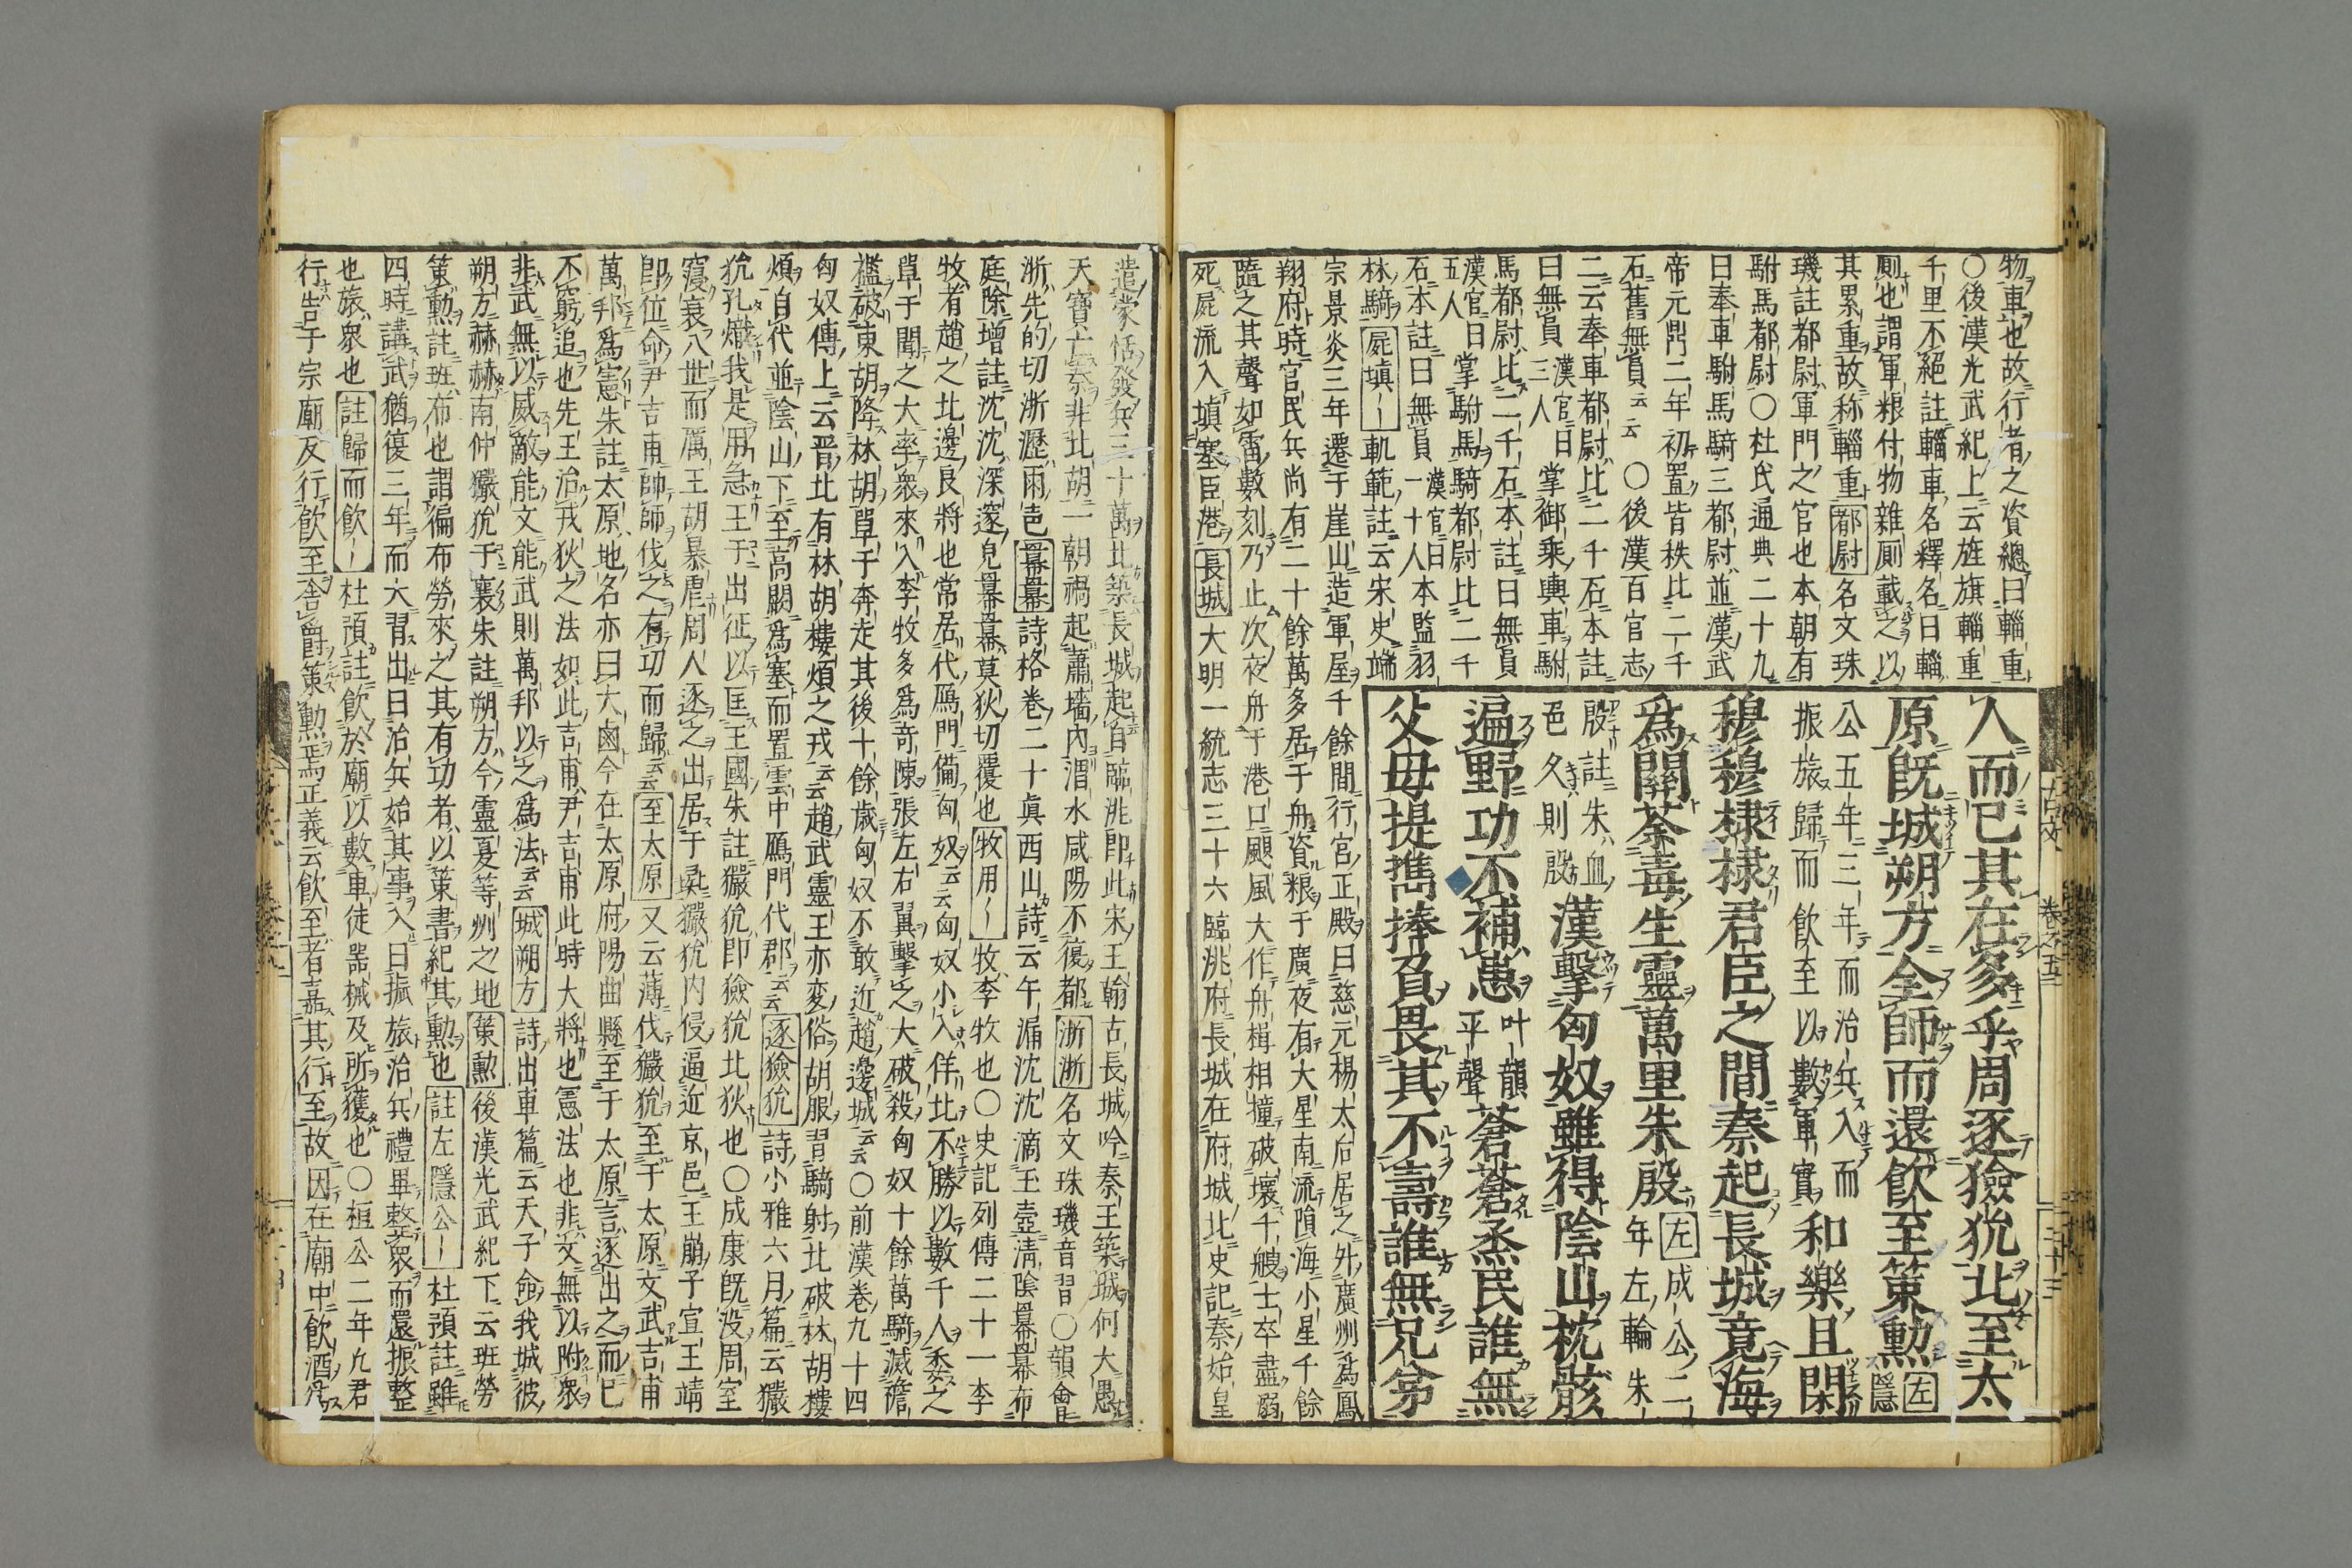 物車也故行者之資總曰輜重
○後漢光武紀上云旌旗輜重
千里不絕註輜車名釋名曰輜
厠也謂軍粮什物雜厠載之以
其累重故称輜重都尉名文珠
璣註都尉軍門之官也本朝有
駙馬都尉○杜氏通典二十九
曰奉車駙馬騎三都尉並漢武
帝元鼎二年初置皆秩比二千
石舊無員云云○後漢百官志
二云奉車都尉比二千石本註
曰無員漢官曰三人掌御乘輿車駙
馬都尉比二千石本註曰無員
漢官曰五人掌駙馬騎都尉比二千
石本註曰無員漢官曰一十人本監羽
林騎屍塡〡軌範註云宋史端
宗景炎三年遷于崖山造軍屋千餘間行宮正殿曰慈元楊太后居之外廣州爲鳳
翔府時官民兵尚有二十餘萬多居于舟資粮于廣夜有大星南流隕海小星千餘
隨之其聲如雷數刻乃止次夜舟于港口颶風大作舟楫相撞破壞千艘士卒盡溺
死屍流入塡塞臣港長城大明一統志三十六臨洮府長城在府城北史記秦始皇
人而已其在多乎周逐獫狁北至太
原旣城朔方全師而還飮至策勲左隱
公五年三年而治兵入而振旅歸而飮至以數軍實和樂且閑
穆穆棣棣君臣之間秦起長城竟海
爲關荼毒生靈萬里朱殷左成公二年左輪朱
殷註朱血色久則殷漢擊匈奴雖得陰山枕骸
遍野功不補患叶韻平聲蒼蒼烝民誰無
父母提攜捧負畏其不壽誰無兄弟
古文 卷之五 二十三
遣蒙恬發兵三十萬北築長城起自臨洮即此宋王翰古長城吟秦王築城何大愚
天寶亡秦非北胡一朝禍起蕭墻內渭水咸陽不復都浙浙名文珠璣音習○韻會
浙先的切浙瀝雨色冪冪詩格卷二十眞西山詩云午漏沈沈滴玉壺淸陰冪冪布
庭除增註沈沈深邃皃冪冪莫狄切覆也牧用〡牧李牧也○史記列傳二十一李
牧者趙之北邊良將也常居代鴈門備匈奴云云匈奴小入佯北不勝以數千人委之
單于聞之大率衆來入李牧多爲奇陳張左右翼擊之大破殺匈奴十餘萬騎滅襜
襤破東胡降林胡單于奔走其後十餘歲匈奴不敢近趙邊城云云○前漢卷九十四
匈奴傳上云晋北有林胡樓煩之戎云云趙武靈王亦変俗胡服習騎射北破林胡樓
煩自代並陰山下至高闕爲塞而置雲中鴈門代郡云云逐獫狁詩小雅六月篇云玁
狁孔熾我是用急王于出征以匡王國朱註玁狁即獫狁北狄也○成康旣没周室
寖衰八世而厲王胡暴虐周人逐之出居于彘玁狁內侵逼近京邑王崩子宣王靖
即位命尹吉甫帥師伐之有功而歸云云至太原又云薄伐玁狁至于太原文武吉甫
萬邦爲憲朱註太原地名亦曰大鹵今在太原府陽曲縣至于太原言逐出之而已
不窮追也先王治戎狄之法如此吉甫尹吉甫此時大將也憲法也非文無以附衆
非武無以威敵能文能武則萬邦以之爲法云云城朔方詩出車篇云天子命我城彼
朔方赫赫南仲玁狁于襄朱註朔方今靈夏等州之地策勲後漢光武紀下云班勞
策勲註班布也謂徧布勞來之其有功者以策書紀其勲也註左隱公〡杜預註雖
四時講武猶復三年而大習出曰治兵始其事入曰振旅治兵禮畢整衆而還振整
也旅衆也註歸而飮〡杜預註飮於廟以數車徒噐械及所獲也○桓公二年凡君
行告于宗廟反行飮至舍爵策勲焉正義云飮至者嘉其行至故因在廟中飮酒爲